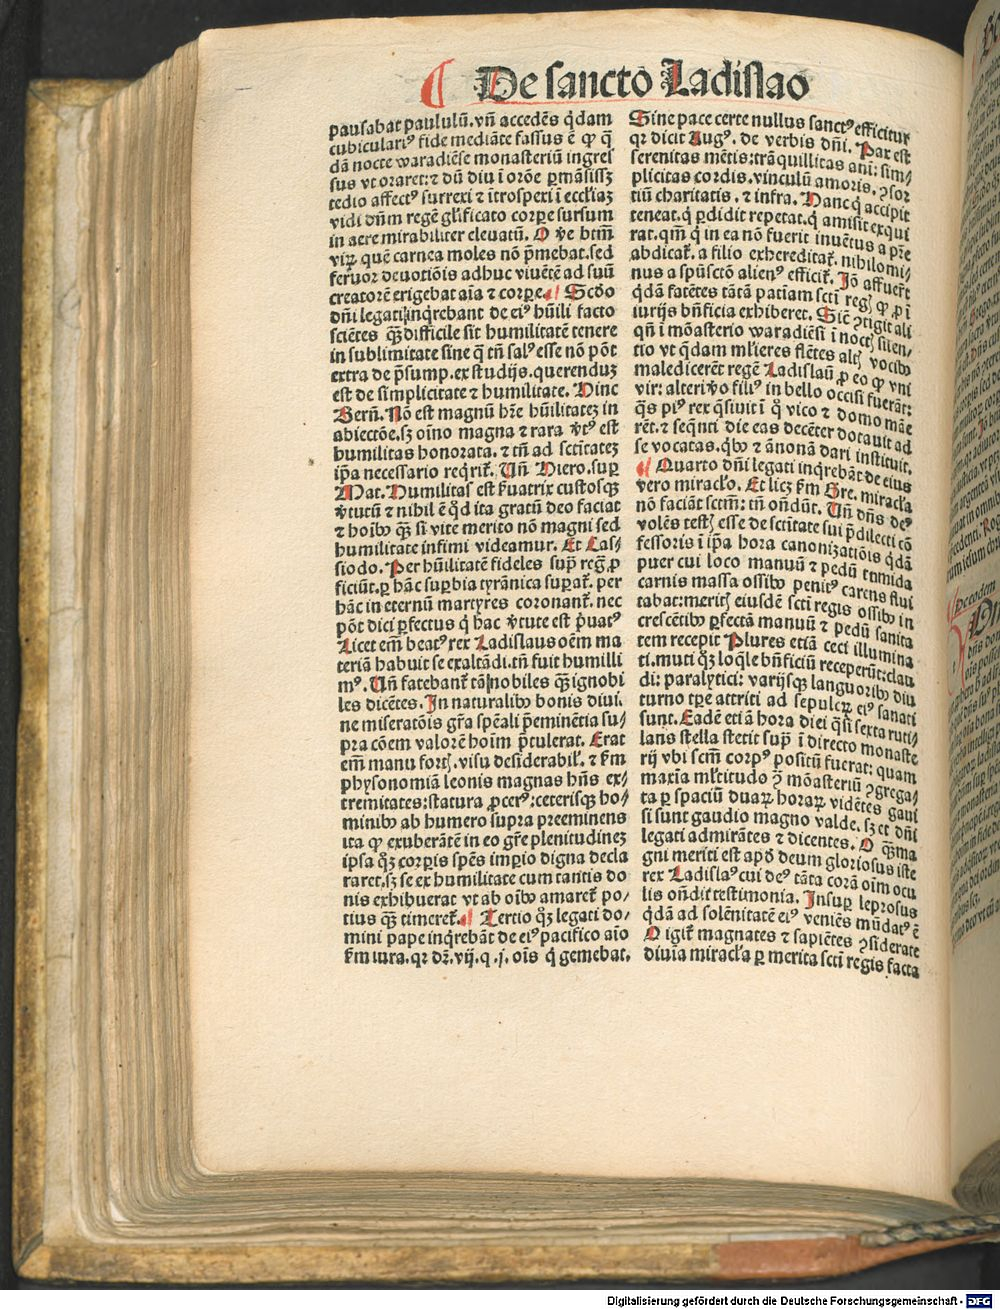 De sancto Ladislao
pausabat paululū. vñ accedēs q̇dam
cubiculariꝰ fide mediāte fassus ē ꝙ q̄
dā nocte waradiēse monasteriū ingres
sus vt oraret: ⁊ dū diu ī orōe ꝑmāsissꝫ
tedio affectꝰ surrexi ⁊ ītrospexi ī eccl'iaꝫ
vidi dn̄m regē gl'ificato corꝑe sursum
in aere mirabiliter eleuatū. O v̄e btm̄
viꝝ quē carnea moles nō p̄mebat. sed
feruor deuotiōis adhuc viuētē ad suū
creatorē erigebat aīa ⁊ corꝑe. Scd̄o
dn̄i legati inq̇rebant de eiꝰ hūili facto
sciētes qꝫ difficile sit humilitatē tenere
in sublimitate sine q̄ tn̄ salꝰ esse nō pōt
extra de p̄sump. ex studijs. querenduꝫ
est de simplicitate ⁊ humilitate. Hinc
Bern̄. Nō est magnū hr̄e hūilitateꝫ in
abiectōe. sꝫ oīno magna ⁊ rara v̄tꝰ est
humilitas honorata. ⁊ tn̄ ad sctītateꝫ
ip̄a necessario req̇rit̄. Un̄ Hiero. suꝑ
Mat. Humilitas est ẜuatrix custosqꝫ
v̄tutū ⁊ nihil ē qd̄ ita gratū deo faciat
⁊ hoībꝰ qꝫ si vite merito nō magni sed
humilitate infimi videamur. Et Cas/
siodo. Per hūilitatē fideles sup̄ reg. ꝓ
ficiūt. ꝑ hāc suꝑbia tyrānica suꝑat̄. per
hāc in eternū martyres coronant̄. nec
pōt dici ꝑfectus q̇ hac v̄tute est p̄uatꝰ
Licet em̄ beatꝰ rex Ladislaus oēm ma
teriā habuit se exaltādi. tn̄ fuit humilli
mꝰ. Un̄ fatebant̄ tā nobiles qꝫ ignobi
les dicētes. In naturalibꝰ bonis diui/
ne miseratōis gr̄a spēali p̄eminētia su/
pra cōem valorē hoīm p̄tulerat. Erat
em̄ manu fortꝭ. visu desiderabil'. ⁊ ẜm
physonomiā leonis magnas hn̄s ex/
tremitates: statura ꝓcerꝰ: ceterisqꝫ ho/
minibꝰ ab humero supra preeminens
ita ꝙ exuberātē in eo gr̄e plenitudineꝫ
ipsa qꝫ corꝑis spēs imꝑio digna decla
raret. sꝫ se ex humilitate cum tantis do
nis exhibuerat vt ab oībꝰ amaret̄ po/
tius qꝫ timeret̄. Tertio qꝫ legati do/
mini pape inq̇rebāt de eiꝰ pacifico aīo
ẜm iura. qr dꝫ. vij. q. j. oīs q̇ gemebat.
Sine pace certe nullus sanctꝰ efficitur
qr dicit Augꝰ. de verbis dn̄i. Pax est
serenitas mētis: trāquillitas aīi: sim/
plicitas cordis. vinculū amoris. ꝯsor
tiū charitatis. ⁊ infra. Hanc q̇ accipit
teneat. q̇ ꝑdidit repetat. q̇ amisit exqui
rat. qm̄ q̇ in ea nō fuerit inuētus a pr̄e
abdicat̄. a filio exhereditat̄. nihilomi/
nus a spūsctō alienꝰ efficit̄. Jō affuer̄t
q̇dā fatētes tātā patīam sctī regꝭ ꝙ ꝓ ī
iurijs bn̄ficia exhiberet. Sic ꝯtigit ali
qn̄ ī mōasterio waradiēsi ī noctꝭ silen/
tio vt q̇dam ml'ieres flētes altꝭ vocibꝰ
maledicerēt regē Ladislaū ꝓ eo ꝙ vni
vir: alteri v̄o filiꝰ in bello occisi fuerāt:
q̇s piꝰ rex q̄siuit ī q̇ vico ⁊ domo māe
rēt. ⁊ seq̄nti die eas decēter dotauit ad
se vocatas. q̇bꝰ ⁊ ānonā dari instituit.
Quarto dn̄i legati inq̇rebāt de eius
vero miracl'o. Et licꝫ ẜm Gre. miracl'a
nō faciāt sctm̄: tn̄ on̄dūt. Un̄ dn̄s deꝰ
volēs testꝭ esse de sctītate sui p̄dilecti cō
fessoris ī ip̄a hora canonizatiōis q̇dā
puer cui loco manuū ⁊ pedū tumida
carnis massa ossibꝰ penitꝰ carens flui
tabat: meritꝭ eiusdē sctī regis ossibꝰ in
crescētibꝰ ꝑfectā manuū ⁊ pedū sanita
tem recepit Plures etiā ceci illumina
ti. muti qꝫ loq̄le bn̄ficiū receperūt: clau
di: paralytici: varijsqꝫ languoribꝰ diu
turno tꝑe attriti ad sepulcꝝ eiꝰ sanati
sunt. Eadē etiā hora diei q̄si sexta ruti/
lans stella stetit sup̄ ī directo monaste
rij vbi scm̄ corpꝰ positū fuerat: quam
maxīa ml'titudo ꝫ mōasteriū ꝯgrega/
ta ꝑ spaciū duaꝝ horaꝝ vidētes gaui
si sunt gaudio magno valde. sꝫ et dn̄i
legati admirātes ⁊ dicentes. O qꝫ ma
gni meriti est apd̄ deum gloriosus iste
rex Ladislaꝰ cui deꝰ tāta corā oīm ocu
lis on̄dit testimonia. Insuꝑ leprosus
q̇dā ad solēnitatē eiꝰ veniēs mūdatꝰ ē
O igit̄ magnates ⁊ sapiētes ꝯsiderate
diuīa miracl'a ꝑ merita sctī regis facta
Digitalisierung gefördert durch die Deutsche Forschungsgemeinschaft - DFG